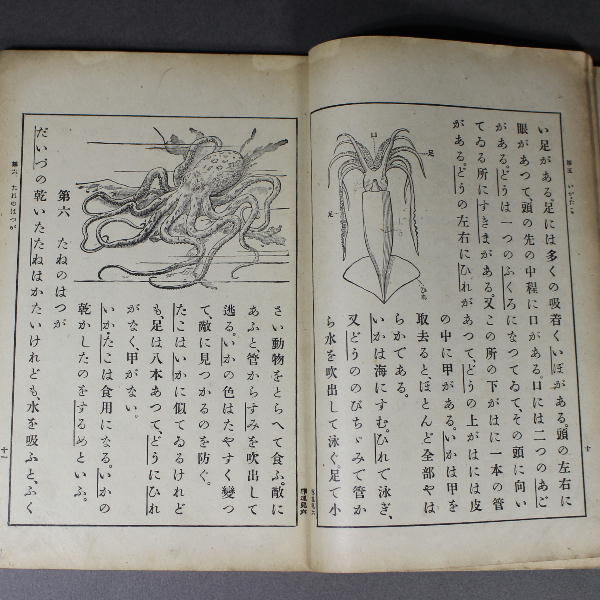 第五 いか・たこ
い足がある。足には多くの吸着くいぼがある。頭の左右に
眼があつて、頭の先の中程に口がある。口には二つのあご
がある。どうは一つのふくろになつてゐて、その頭に向い
てゐる所にすきまがある。又この所の下がはに一本の管
がある。どうの左右にひれがあつて、どうの上がはには皮
の中に甲がある。いかは甲を
取去るとほとんど全部やは
らかである。
いかは海にすむ。ひれで泳ぎ、
又どうののびちゞみで管か
ら水を吹出して泳ぐ。足で小
口
足
足
ひれ
十
さい動物をとらへて食ふ。敵に
あふと管からすみを吹出して
逃る。いかの色はたやすく變つ
て、敵に見つかるのを防ぐ。
たこはいかに似てゐるけれど
も、足は八本あつて、どうにひれ
がなく、甲がない。
いか・たこは食用になる。いかの
乾かしたのをするめといふ。
第六 たねのはつが
だいづの乾いたたねはかたいけれども、水を吸ふと、ふく
第六 たねのはつが
十一